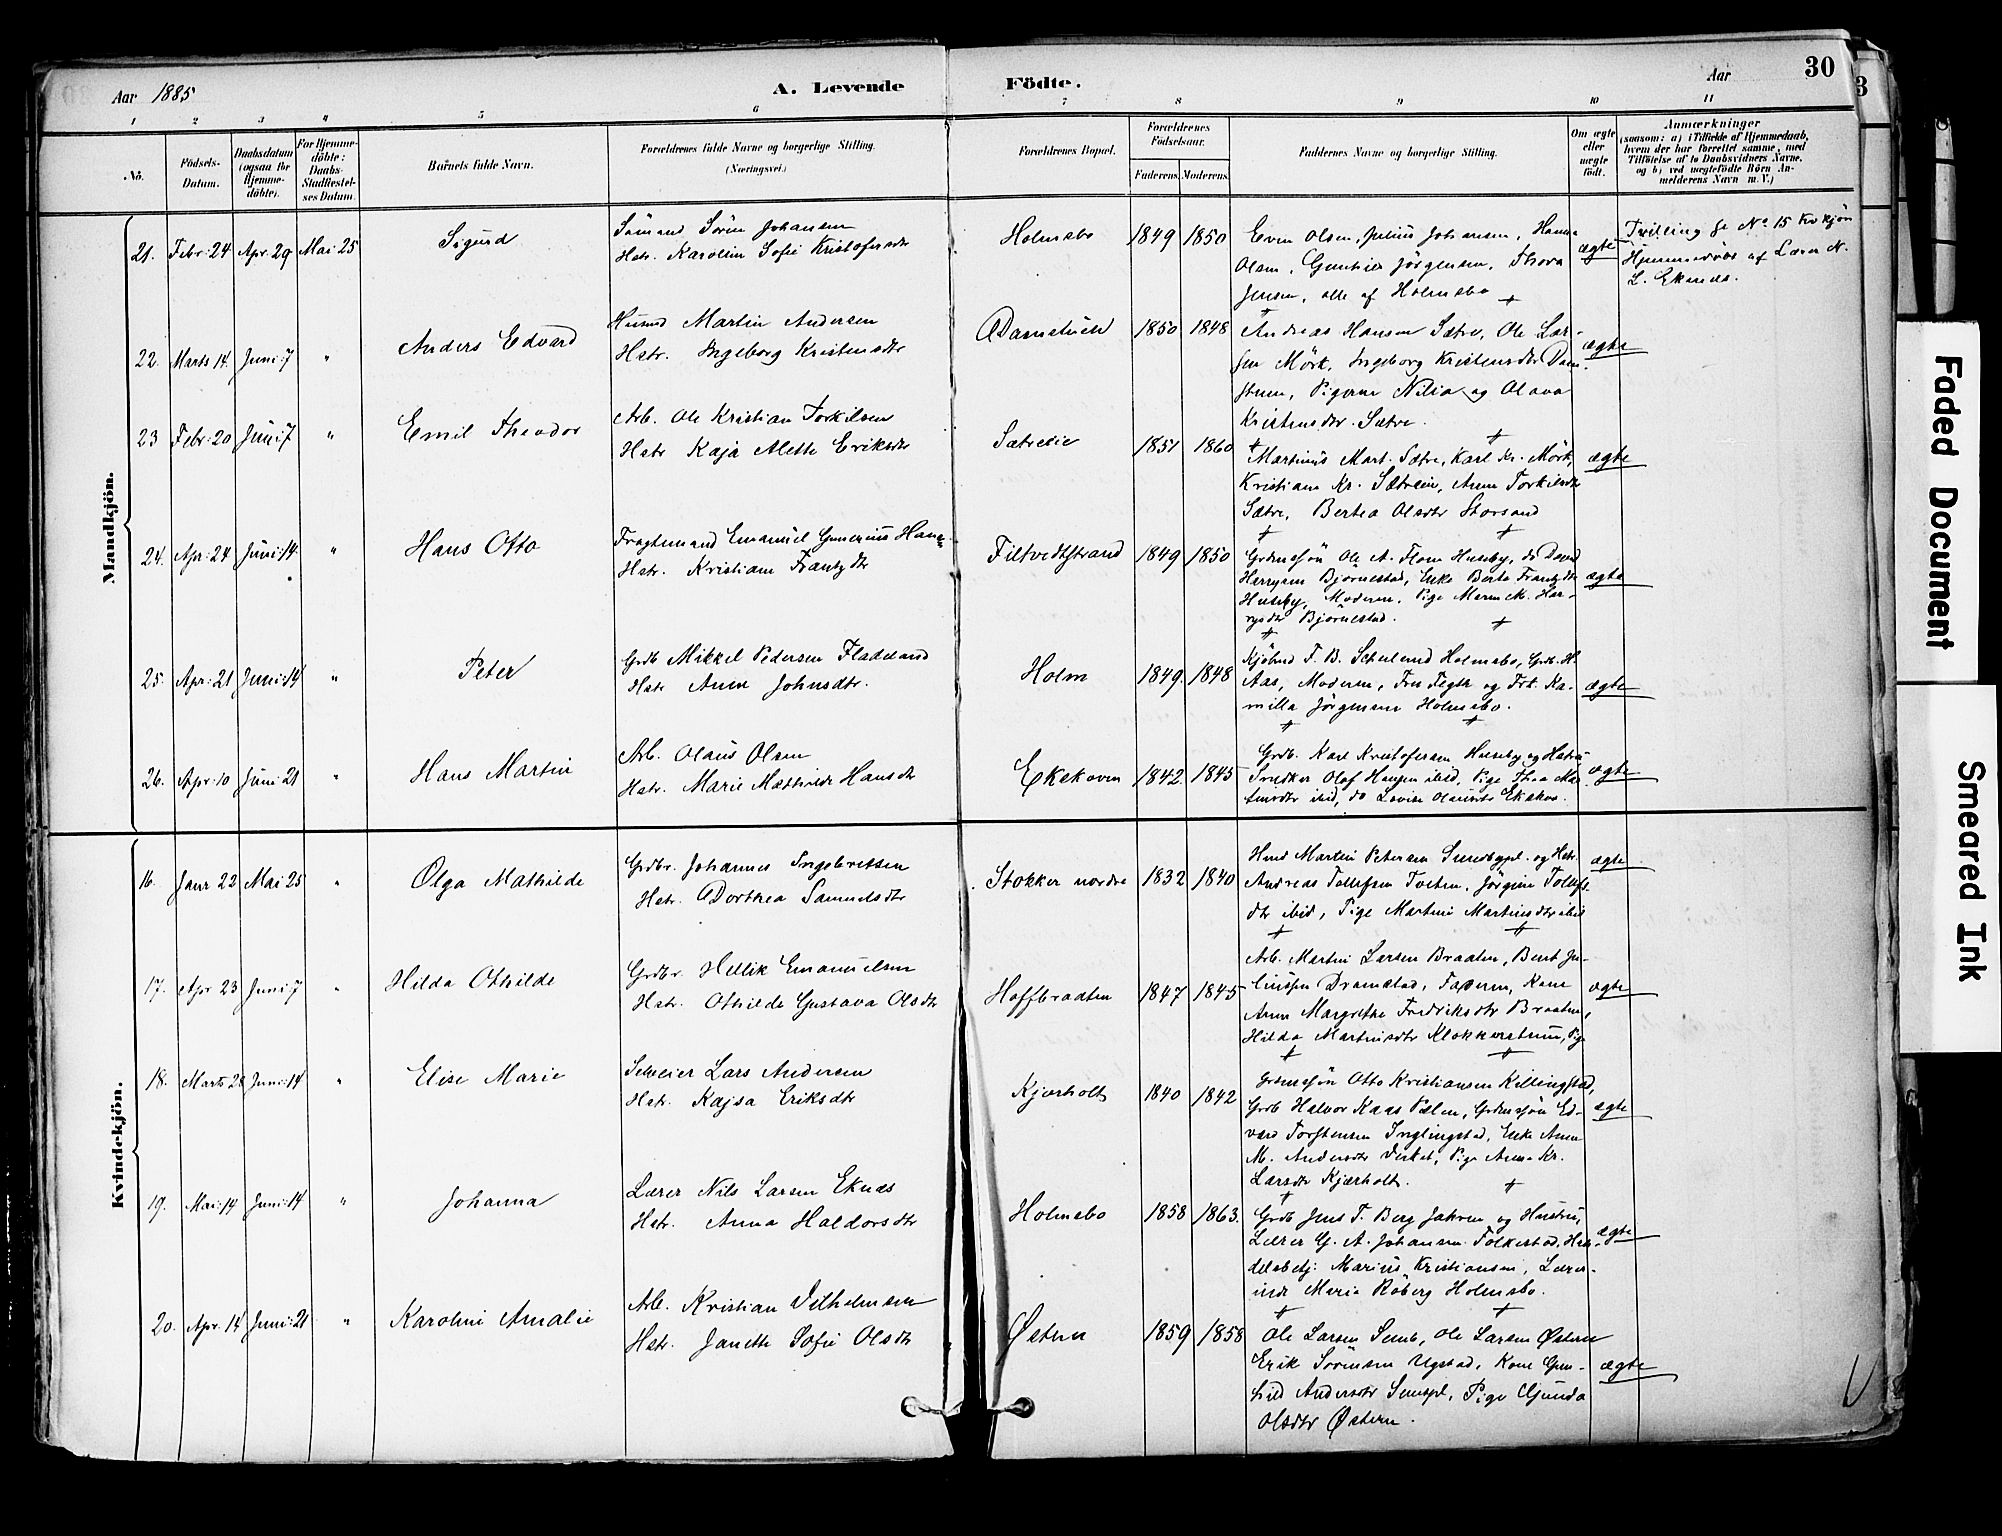 Aar 1885
A. Levende Födte.
Aar
30
3
1 2 3 4 5 6 7 8 9 10 11
No.
Födsels-Datum.
Daabsdatum (ogsaa for Hjemmedöbte).
For Hjemmedöbte: Daabs-Stadfæstelses Datum.
Barnets fulde Navn.
Forældrenes fulde Navne og borgerlige Stilling. (Næringsvei.)
Forældrenes Bopæl.
Forældrenes Födselsaar.
Faderens. Moderens.
Faddernes Navne og borgerlige Stilling.
Om ægte eller uægte födt.
Anmærkninger
(saasom: a) i Tilfælde af Hjemmedaab, hvem der har forrettet samme, med Tilföielse af to Daabsvidners Navne, og b) ved uægtefödte Börn Anmelderens Navn m. V.)
Mandkjön.
21. Febr: 24 Apr. 29 Mai 25 Sigurd
Sömand Sörin Johansen
Hstr. Karolin Sofie Kristofersdtr
Holmsbo 1849 1850
Even Olsen, Julius Johansen, Hans
Olsen, Jörgensen, Thora
Jensen, alle af Holmsbo
ægte
Tvilling se No 15 Kvkjön
Hjemmedöbt af Lærer N.
L. Eknæs.
22. Marts 14. Juni: 7 " Anders Edvard
Husmd Martin Andersen
Hstr. Ingeborg Kristensdtr
1850 1848
Andreas Hansen Sætre, Ole Lar-
sen Mörk, Ingeborg Kristensdtr Dam-
Pigerne Nilia og Olava
Kristensdtr. Sætre.
ægte
23 Febr: 20 Juni 7 " Emil Theodor
Arb. Ole Kristian Torkilsen
Hstr Kaja Alette Eriksdtr
Sætreeie 1851 1860
Martinus Mart. Sætre, Karl Kr. Mörk,
Kristiane Kr. Sætreeie, Anne Torkilsdtr
Sætre, Bertea Olsdtr Storsand
ægte
24. Apr: 24 Juni: 14. " Hans Otto
Fragtemand Emanuel Gunerius Hans-
Hstr. Kristiane Frantzdtr
Filtvedtstrand 1849 1850
Grdmdssön Ole A. Huseby, do David
Harrysen Björnestad, Enke Berte Frantzdtr
Huseby, Moderen, Pige Maren M. Har-
rysdtr Björnestad.
ægte
25. Apr: 21 Juni: 14 " Peter
Grdb Mikkel Pedersen Fladeland
Hstr Anne Johnsdtr.
Holm 1849. 1848
Kjöbmd T. B. Holmsbo, Grdb. H.
Aas, Moderen, Fru og Frk. Ka-
milla Jörgensen Holmsbo.
ægte
26. Apr: 10 Juni: 21 " Hans Martin
Arb. Olaus Olsen
Hstr. Marie Mathilde Hansdtr
Ekekoven 1842. 1845
Grdb. Karl Kristofersen Huseby og Hstru
Snedker Olaf Hansen ibid, Pige Thea Mar-
tinsdtr ibid, do Lovise Olausdtr Ekekov.
ægte
Kvindekjön.
16. Janr 22 Mai 25 " Olga Mathilde
Grdbr. Johannes Ingebretsen
Hstr. Dorthea Samuelsdtr
Stokker nordre 1832 1840
Husmd Martin Petersen og Hstr.
Andreas Tollefsen Tveten, Jörgine Tollefs-
dtr ibid, Pige Martine Martinsdtr ibid
ægte
17. Apr 23 Juni: 7 " Hilda Othilde
Grdbr. Hellik Emanuelsen
Hstr. Othilde Gustava Olsdtr
Hoffbraaten 1847 1845
Arb. Martin Larsen Braaten, Bent Ju-
liussen Dramstad, Faderen, Kone
Anne Margrethe Fredriksdtr Braaten,
Hilda Martinsdtr Klokkerstuen, Pige
ægte
18. Marts 28 Juni: 14 " Elise Marie
Lars Andersen
Hstr. Kajsa Eriksdtr
Kjærholt 1840 1842
Grdmdssön Otto Kristiansen Killingstad,
Grdb Halvor Kaas Grdmdssön Ed-
vard Torstensen Inglingstad, Enke Anne
M. Andersdtr Virket, Pige Anne Kr.
Larsdtr Kjærholt.
ægte
19. Mai: 14 Juni: 14 " Johanna
Lærer Nils Larsen Eknæs
Hstr. Anna Haldorsdtr
Holmsbo 1858 1863.
Grdb Jens T. Berg og Hustru,
Lærer G. A. Johansen Folkestad, Han-
delsbetj: Marius Kristiansen, Lærer-
inde Marie Röberg Holmsbo.
ægte
20. Apr. 14 Juni: 21 " Karoline Amalie
Arb. Kristian Vilhelmsen
Hstr. Janette Sofie Olsdtr
Østern 1859 1858
Ole Larsen Ole Larsen Østern
Erik Sörensen Ugstad, Kone Gun-
hild Andersdtr Pige Gjunda
Olsdtr Østern.
ægte
Faded Document
Smeared Ink